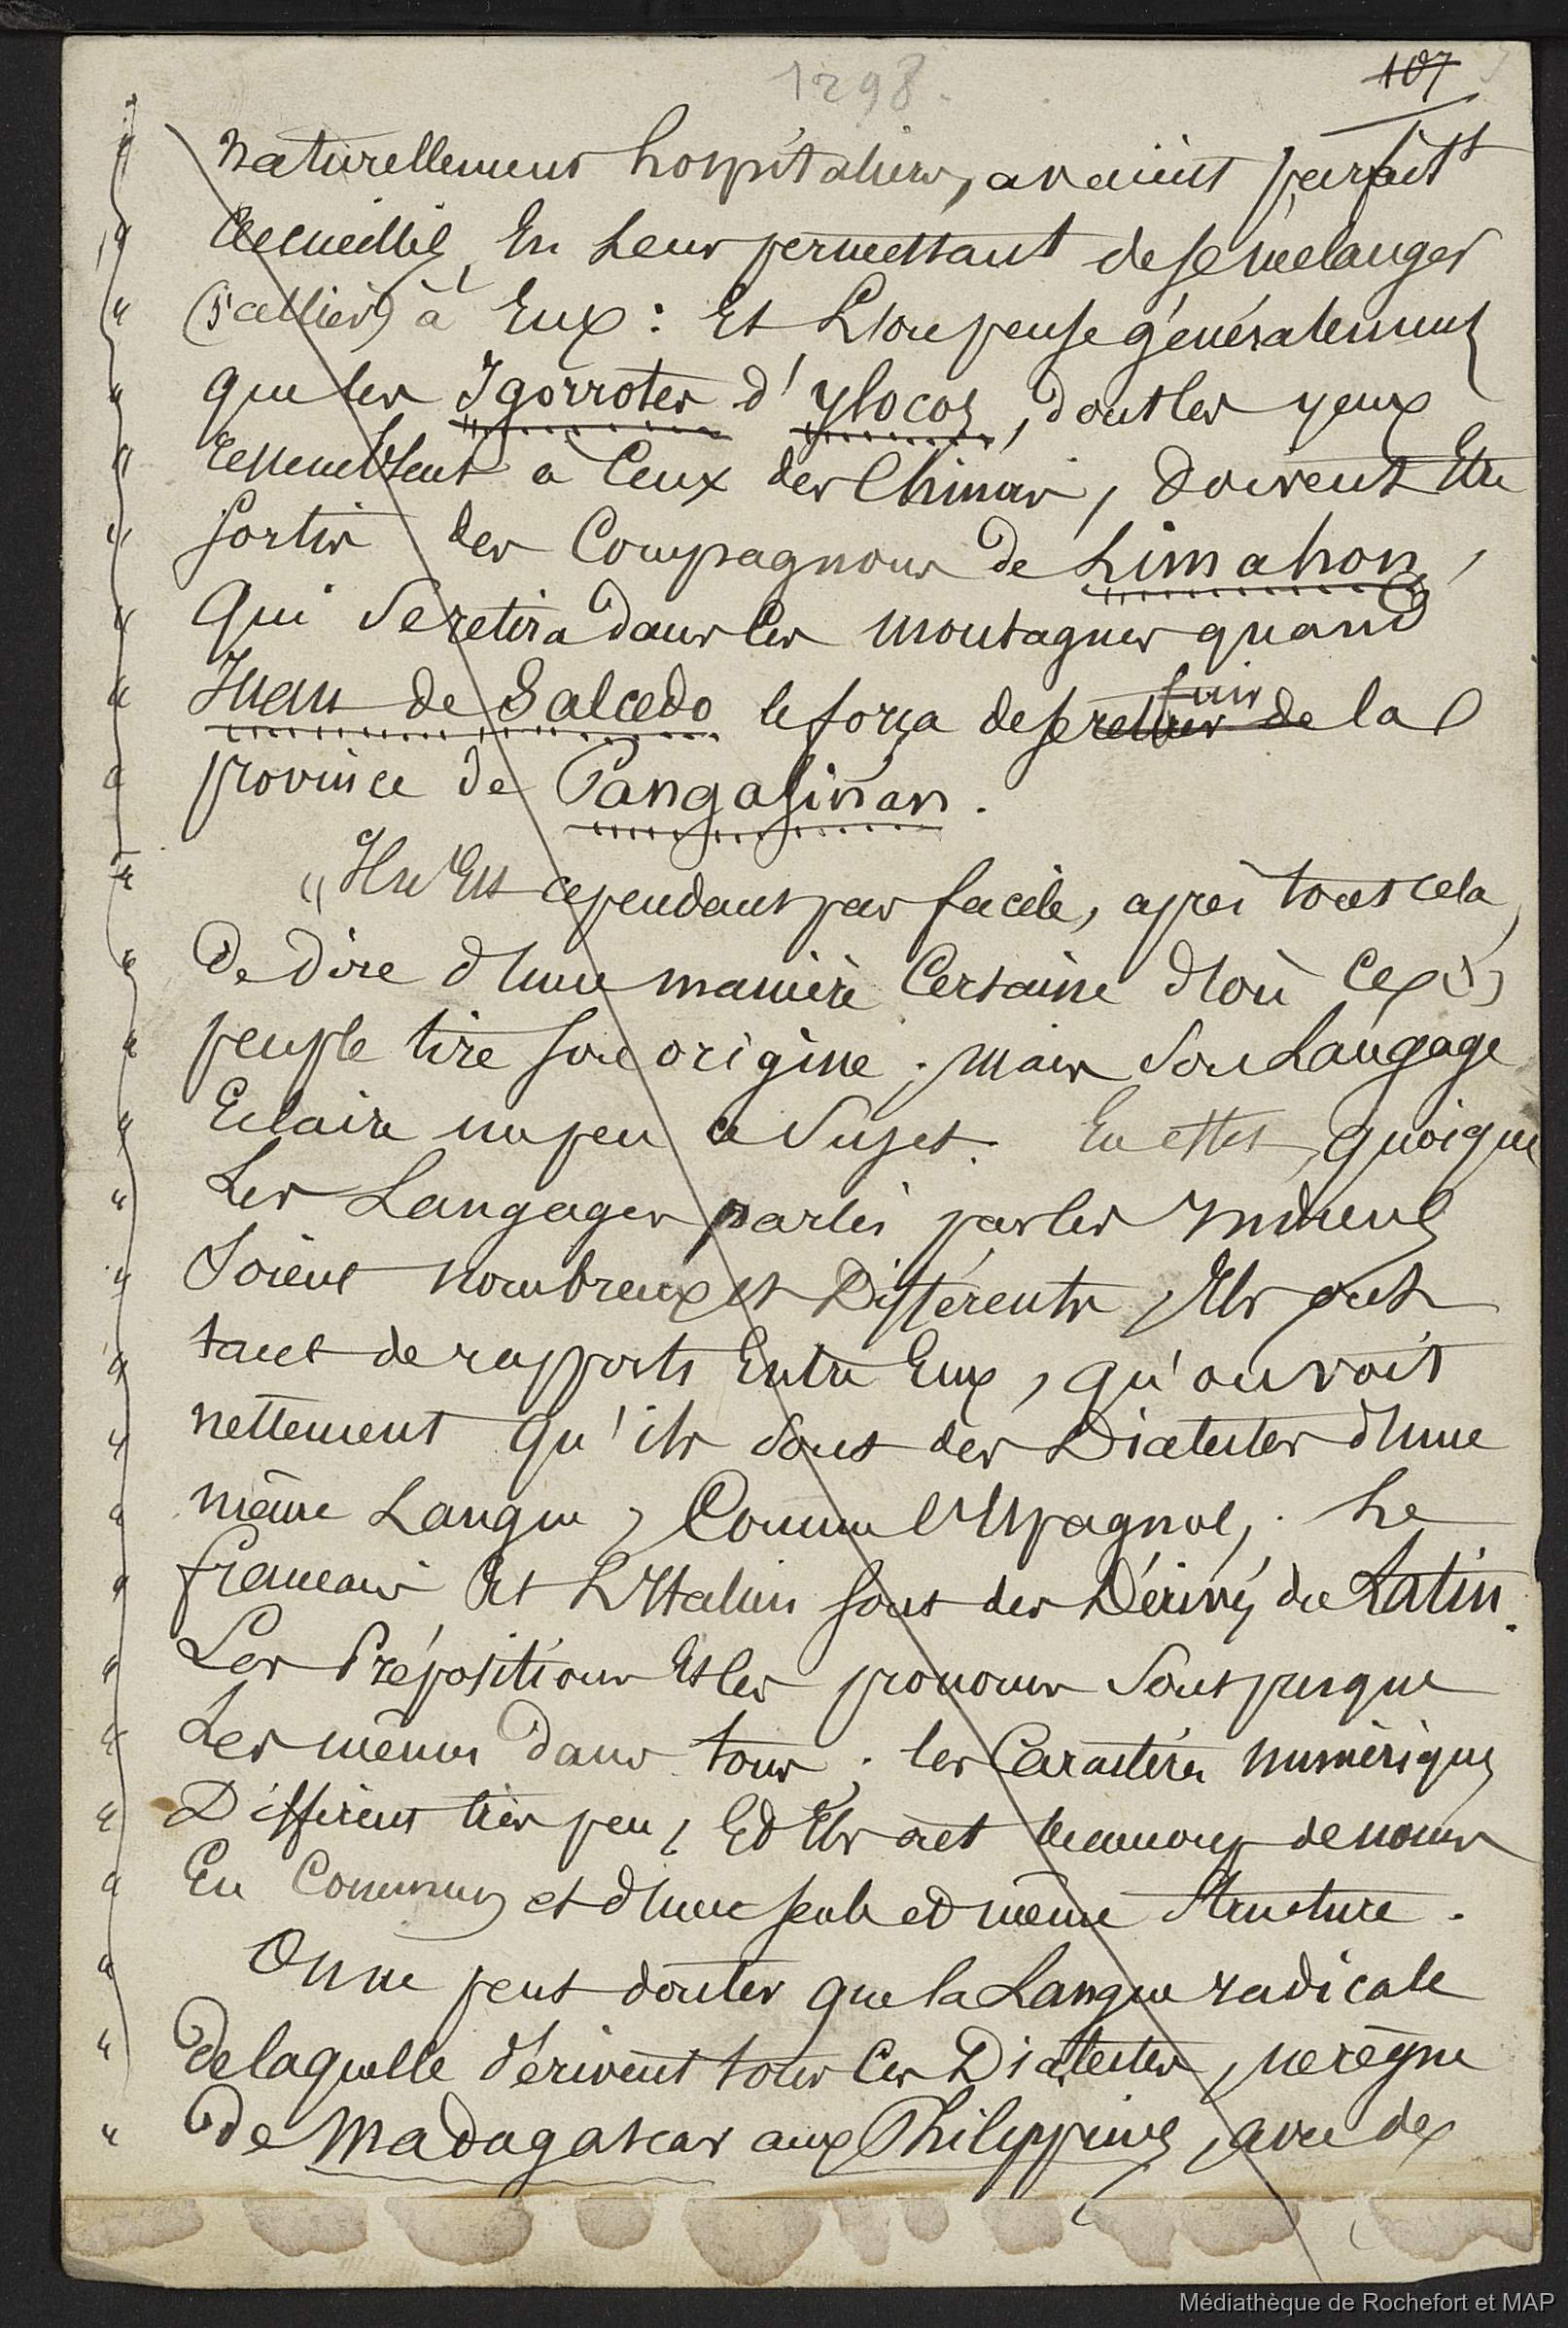 1298.
107
naturellement hospitaliers, avaient parfait^t
accueillis, En Leur permettant de se mélanger
(s'allier) à Eux : Et L'on pense généralement
que les Igorrotes d'Ylocos, dont les yeux
ressemblent à Ceux des Chinois, doivent Etre
sortis des Compagnons de Limahon,
Qui Se retira dans les montagnes quand
Juan de Salcedo le força de se retirer de fuir la
province de Pangasinan.
« Il n'Est cependant pas facile, après tout cela,
De dire d'une manière Certaine d'où Ce
peuple tire son origine ; mais Son Langage
Eclaire un peu ce Sujet. En effet, quoique
Les Langages parlés par les Indiens
Soient nombreux et Différents, Ils ont
tant de rapports Entre Eux, qu'on voit
nettement qu'ils Sont des Dialectes d'une
même Langue, Comme l'Espagnol, Le
français Et L'Italien sont des Dérivés du Latin.
Les Prépositions Et les pronoms Sont presque
Les mêmes dans tous ; les Caractères numériques
Diffèrent très peu, Et Ils ont beaucoup de noms
En Commun, et d'une seule et même Structure.
On ne peut douter que la Langue radicale
de laquelle dérivent tous Ces Dialectes, ne règne
de Madagascar aux Philippines, avec des
Médiathèque de Rochefort et MAP